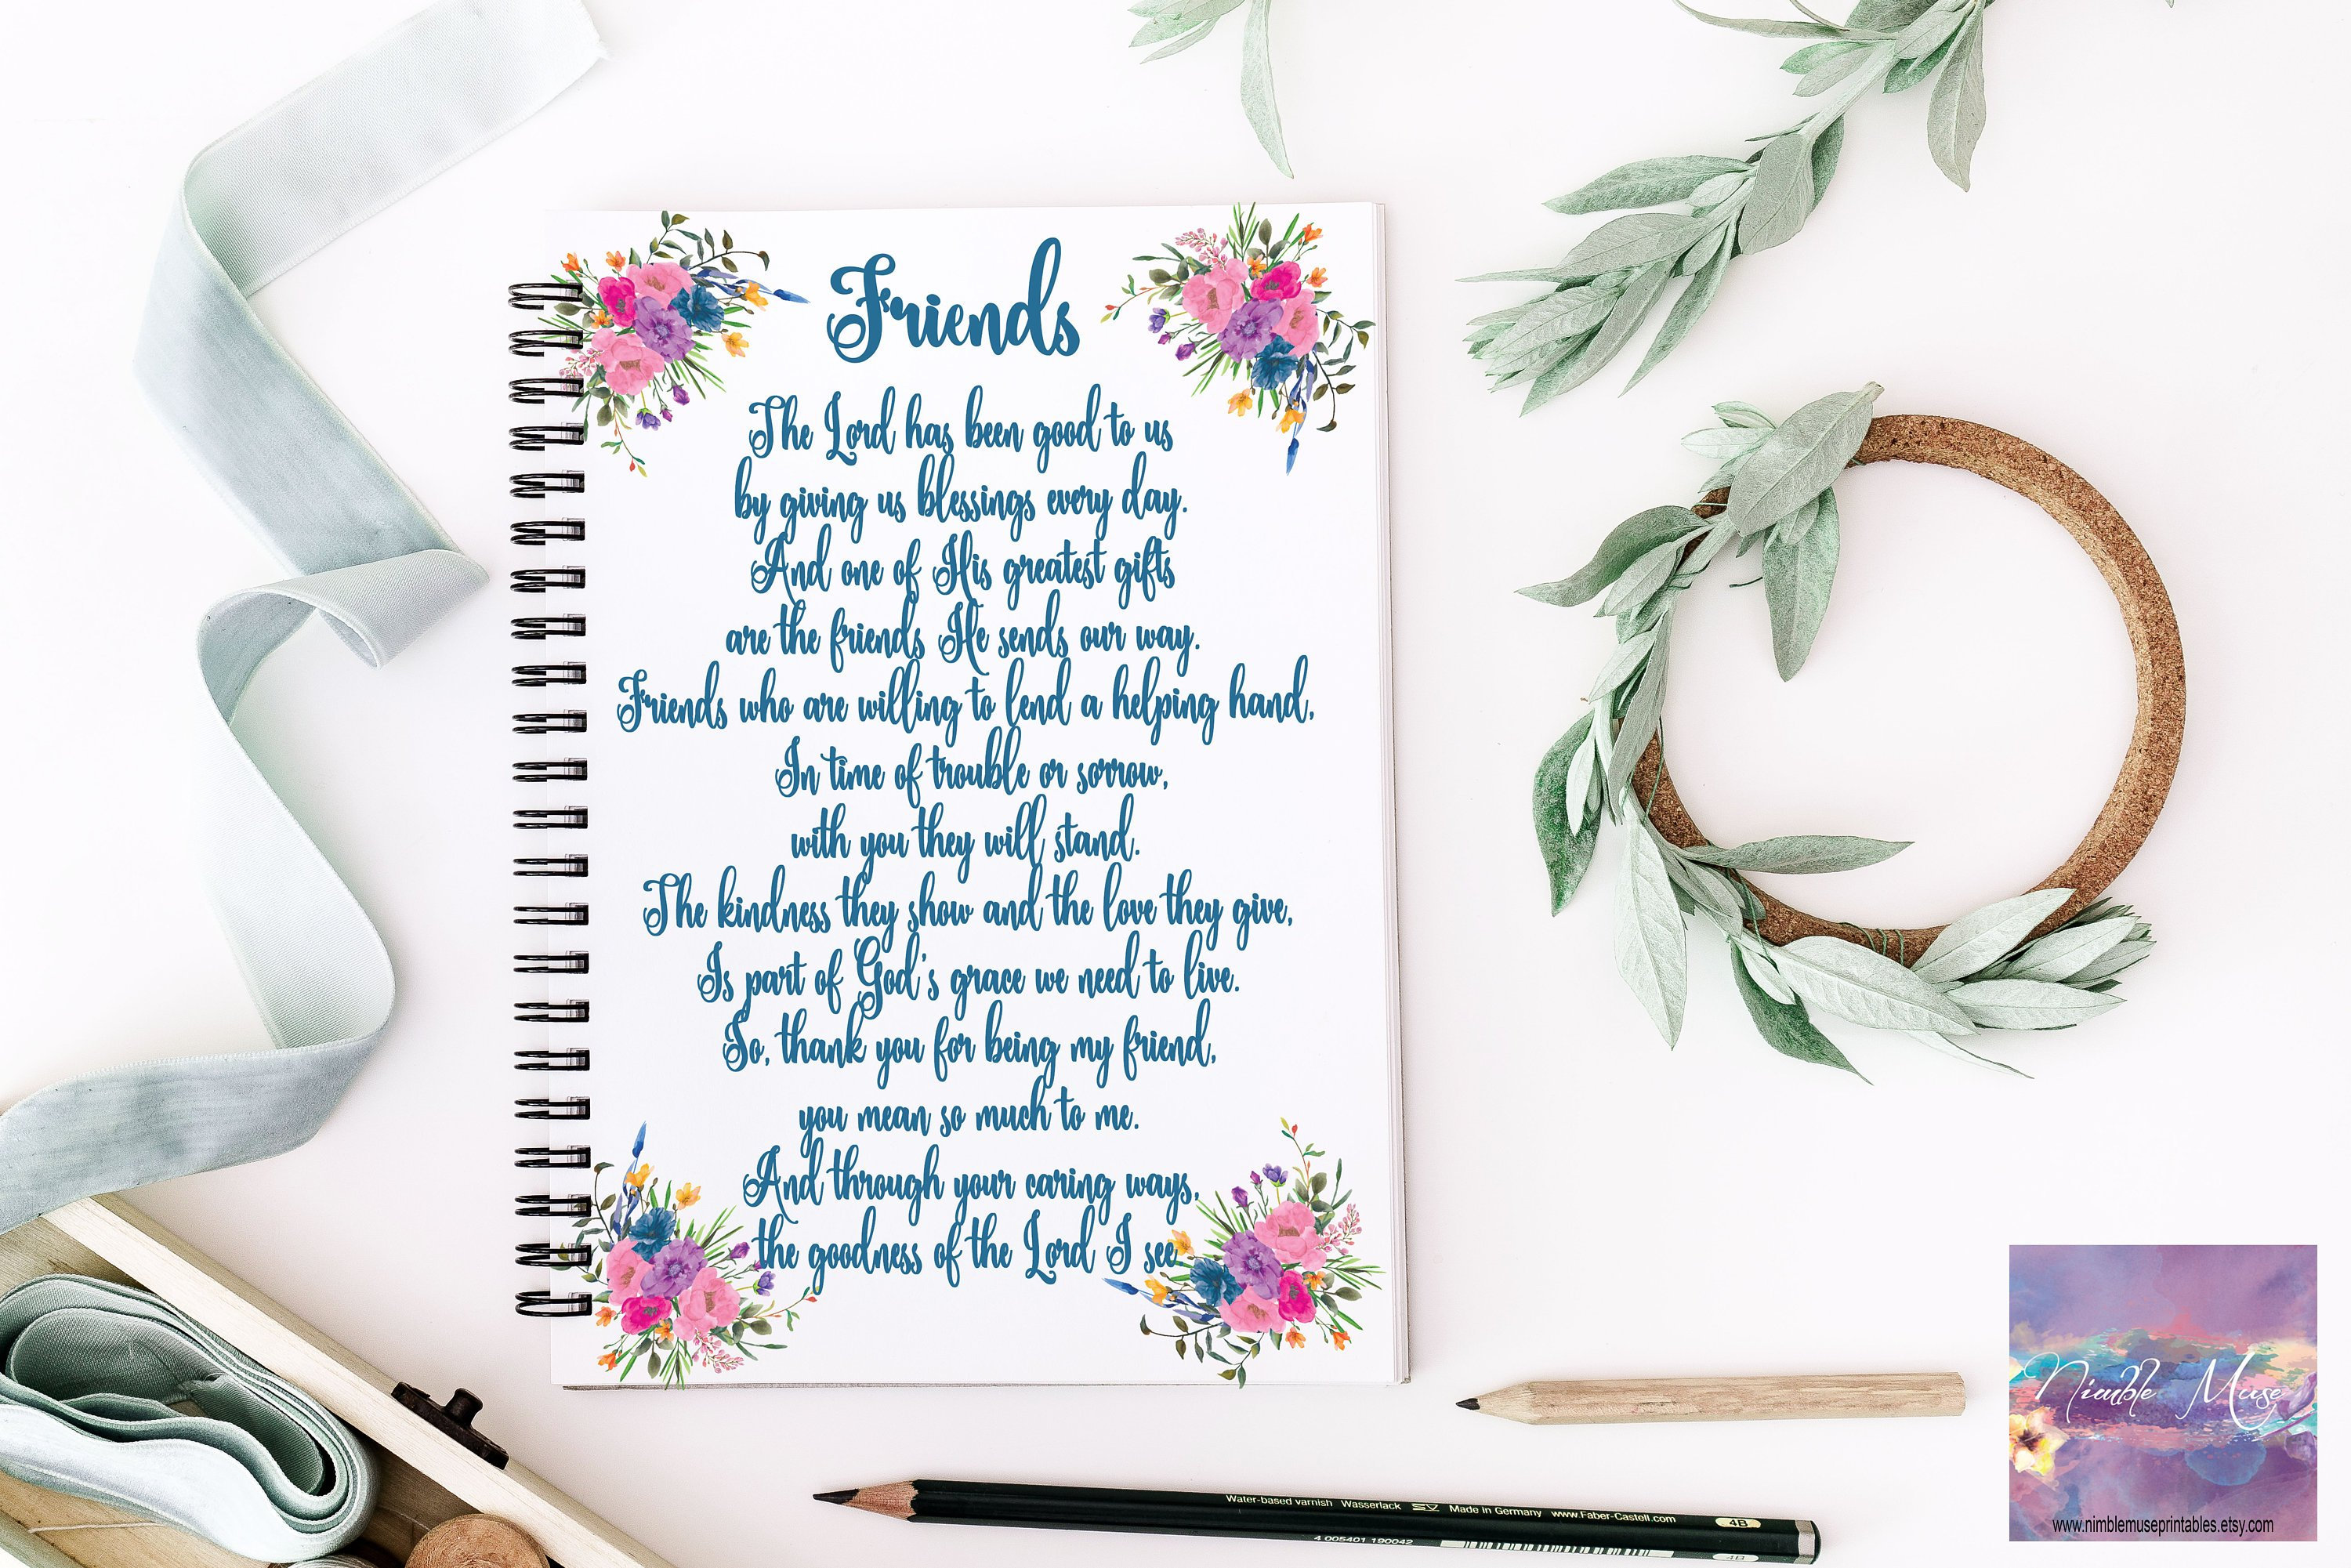 Friends
The Lord has been good to us
by giving us blessings every day.
And one of His greatest gifts
are the friends He sends our way.
Friends who are willing to lend a helping hand,
In time of trouble or sorrow,
with you they will stand.
The kindness they show and the love they give,
Is part of God's grace we need to live.
So, thank you for being my friend,
you mean so much to me.
And through your caring ways,
the goodness of the Lord I see.
Water-based varnish Wasserlack SV Made in Germany www.Faber-Castell.com 4B
4 005401 190042 4B
Nimble Muse
www.nimblemuseprintables.etsy.com